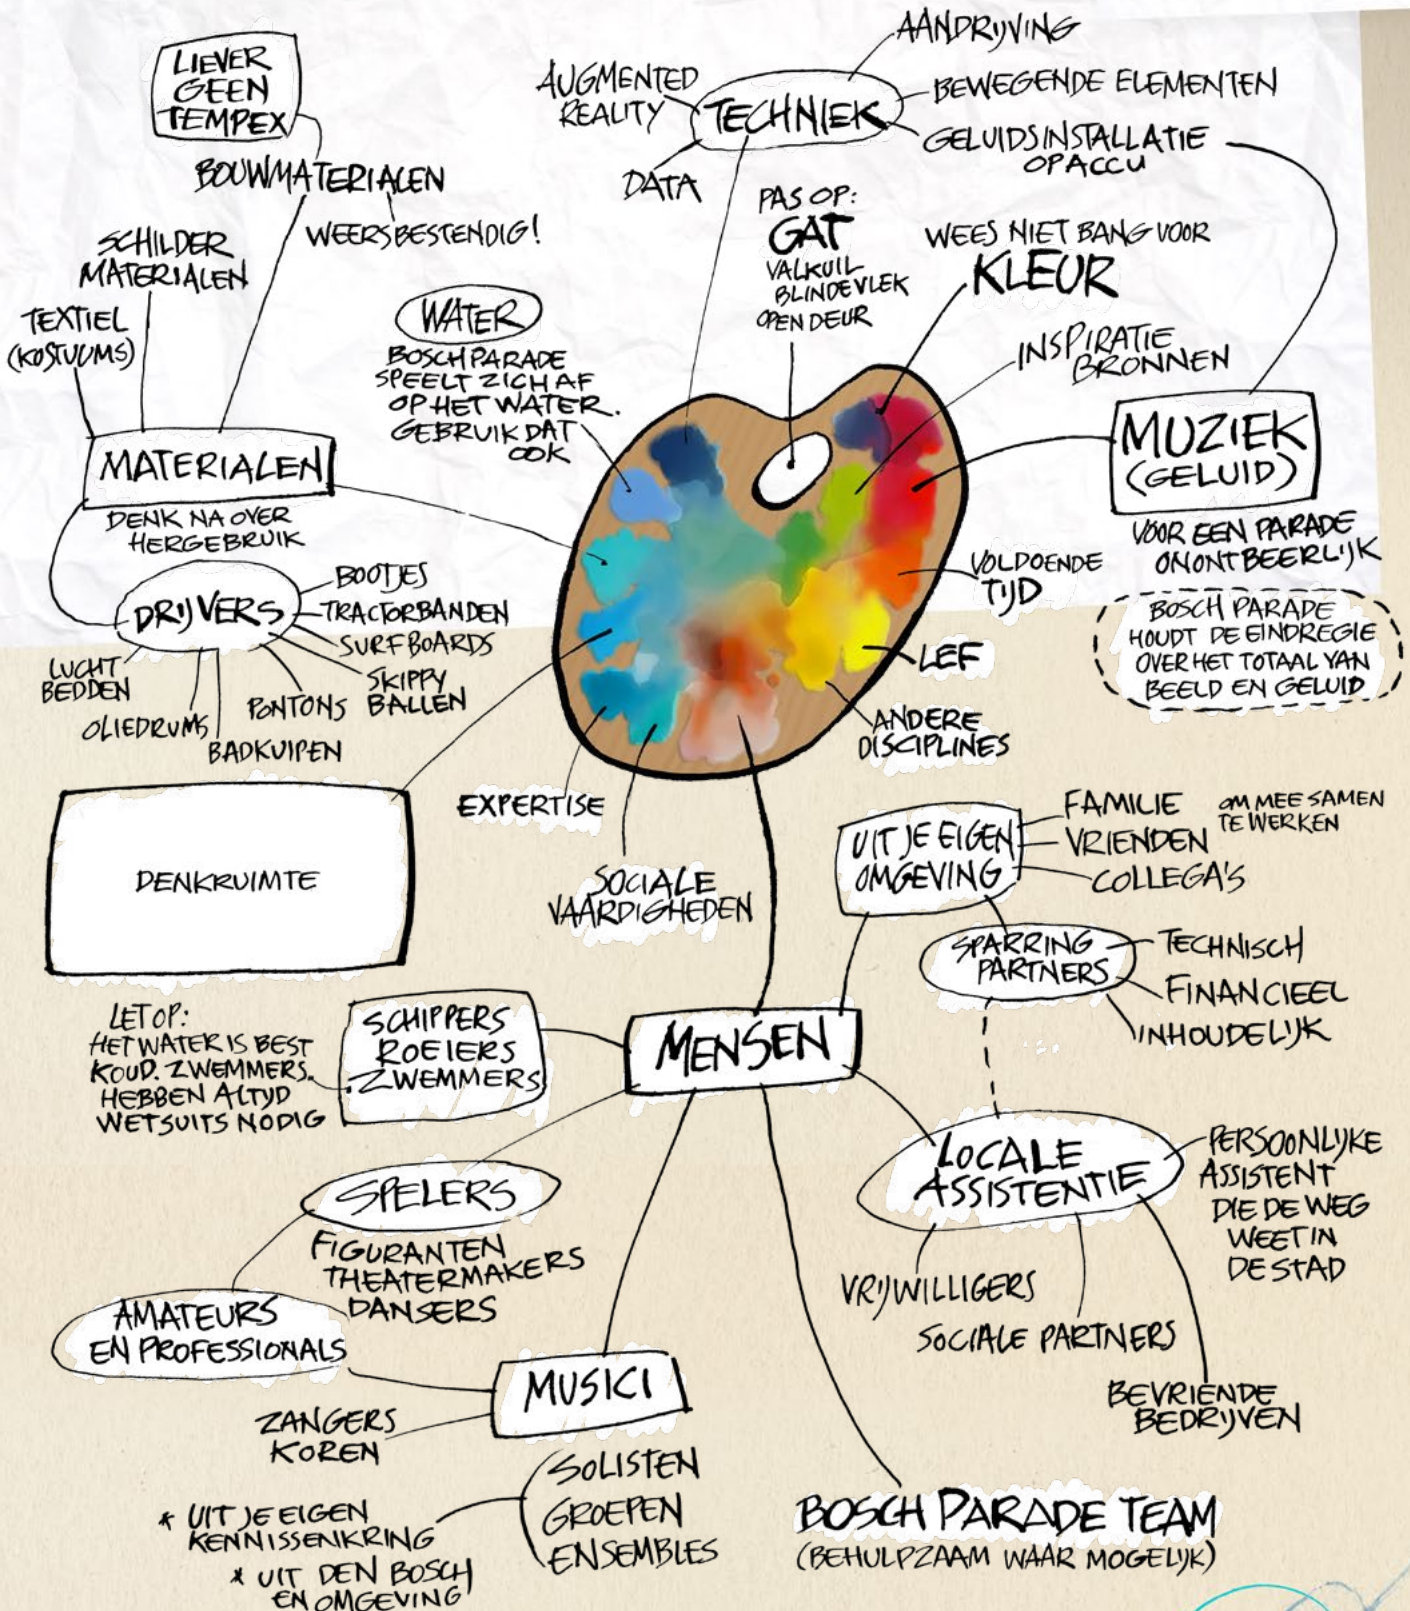 LIEVER
GEEN
TEMPEX
BOUWMATERIALEN
WEERSBESTENDIG!
SCHILDER
MATERIALEN
TEXTIEL
(KOSTUUMS)
MATERIALEN
DENK NA OVER
HERGEBRUIK
DRIJVERS
BOOTJES
TRACTORBANDEN
SURFBOARDS
SKIPPY
BALLEN
PONTONS
BADKUIPEN
OLIEDRUMS
LUCHT
BEDDEN
WATER
BOSCH PARADE
SPEELT ZICH AF
OP HET WATER.
GEBRUIK DAT
OOK
AUGMENTED
REALITY
TECHNIEK
DATA
AANDRIJVING
BEWEGENDE ELEMENTEN
GELUIDSINSTALLATIE
OP ACCU
PAS OP:
GAT
VALKUIL
BLINDE VLEK
OPEN DEUR
WEES NIET BANG VOOR
KLEUR
INSPIRATIE
BRONNEN
MUZIEK
(GELUID)
VOOR EEN PARADE
ONONTBEERLIJK
BOSCH PARADE
HOUDT DE EINDREGIE
OVER HET TOTAAL VAN
BEELD EN GELUID
VOLDOENDE
TIJD
LEF
ANDERE
DISCIPLINES
EXPERTISE
SOCIALE
VAARDIGHEDEN
DENKRUIMTE
UIT JE EIGEN
OMGEVING
FAMILIE
VRIENDEN
COLLEGA'S
OM MEE SAMEN
TE WERKEN
SPARRING
PARTNERS
TECHNISCH
FINANCIEEL
INHOUDELIJK
MENSEN
SCHIPPERS
ROEIERS
ZWEMMERS
LET OP:
HET WATER IS BEST
KOUD. ZWEMMERS
HEBBEN ALTYD
WETSUITS NODIG
LOCALE
ASSISTENTIE
PERSOONLIJKE
ASSISTENT
DIE DE WEG
WEET IN
DE STAD
VRIJWILLIGERS
SOCIALE PARTNERS
BEVRIENDE
BEDRIJVEN
SPELERS
FIGURANTEN
THEATERMAKERS
DANSERS
AMATEURS
EN PROFESSIONALS
MUSICI
ZANGERS
KOREN
SOLISTEN
GROEPEN
ENSEMBLES
* UIT JE EIGEN
KENNISSENKRING
* UIT DEN BOSCH
EN OMGEVING
BOSCH PARADE TEAM
(BEHULPZAAM WAAR MOGELIJK)